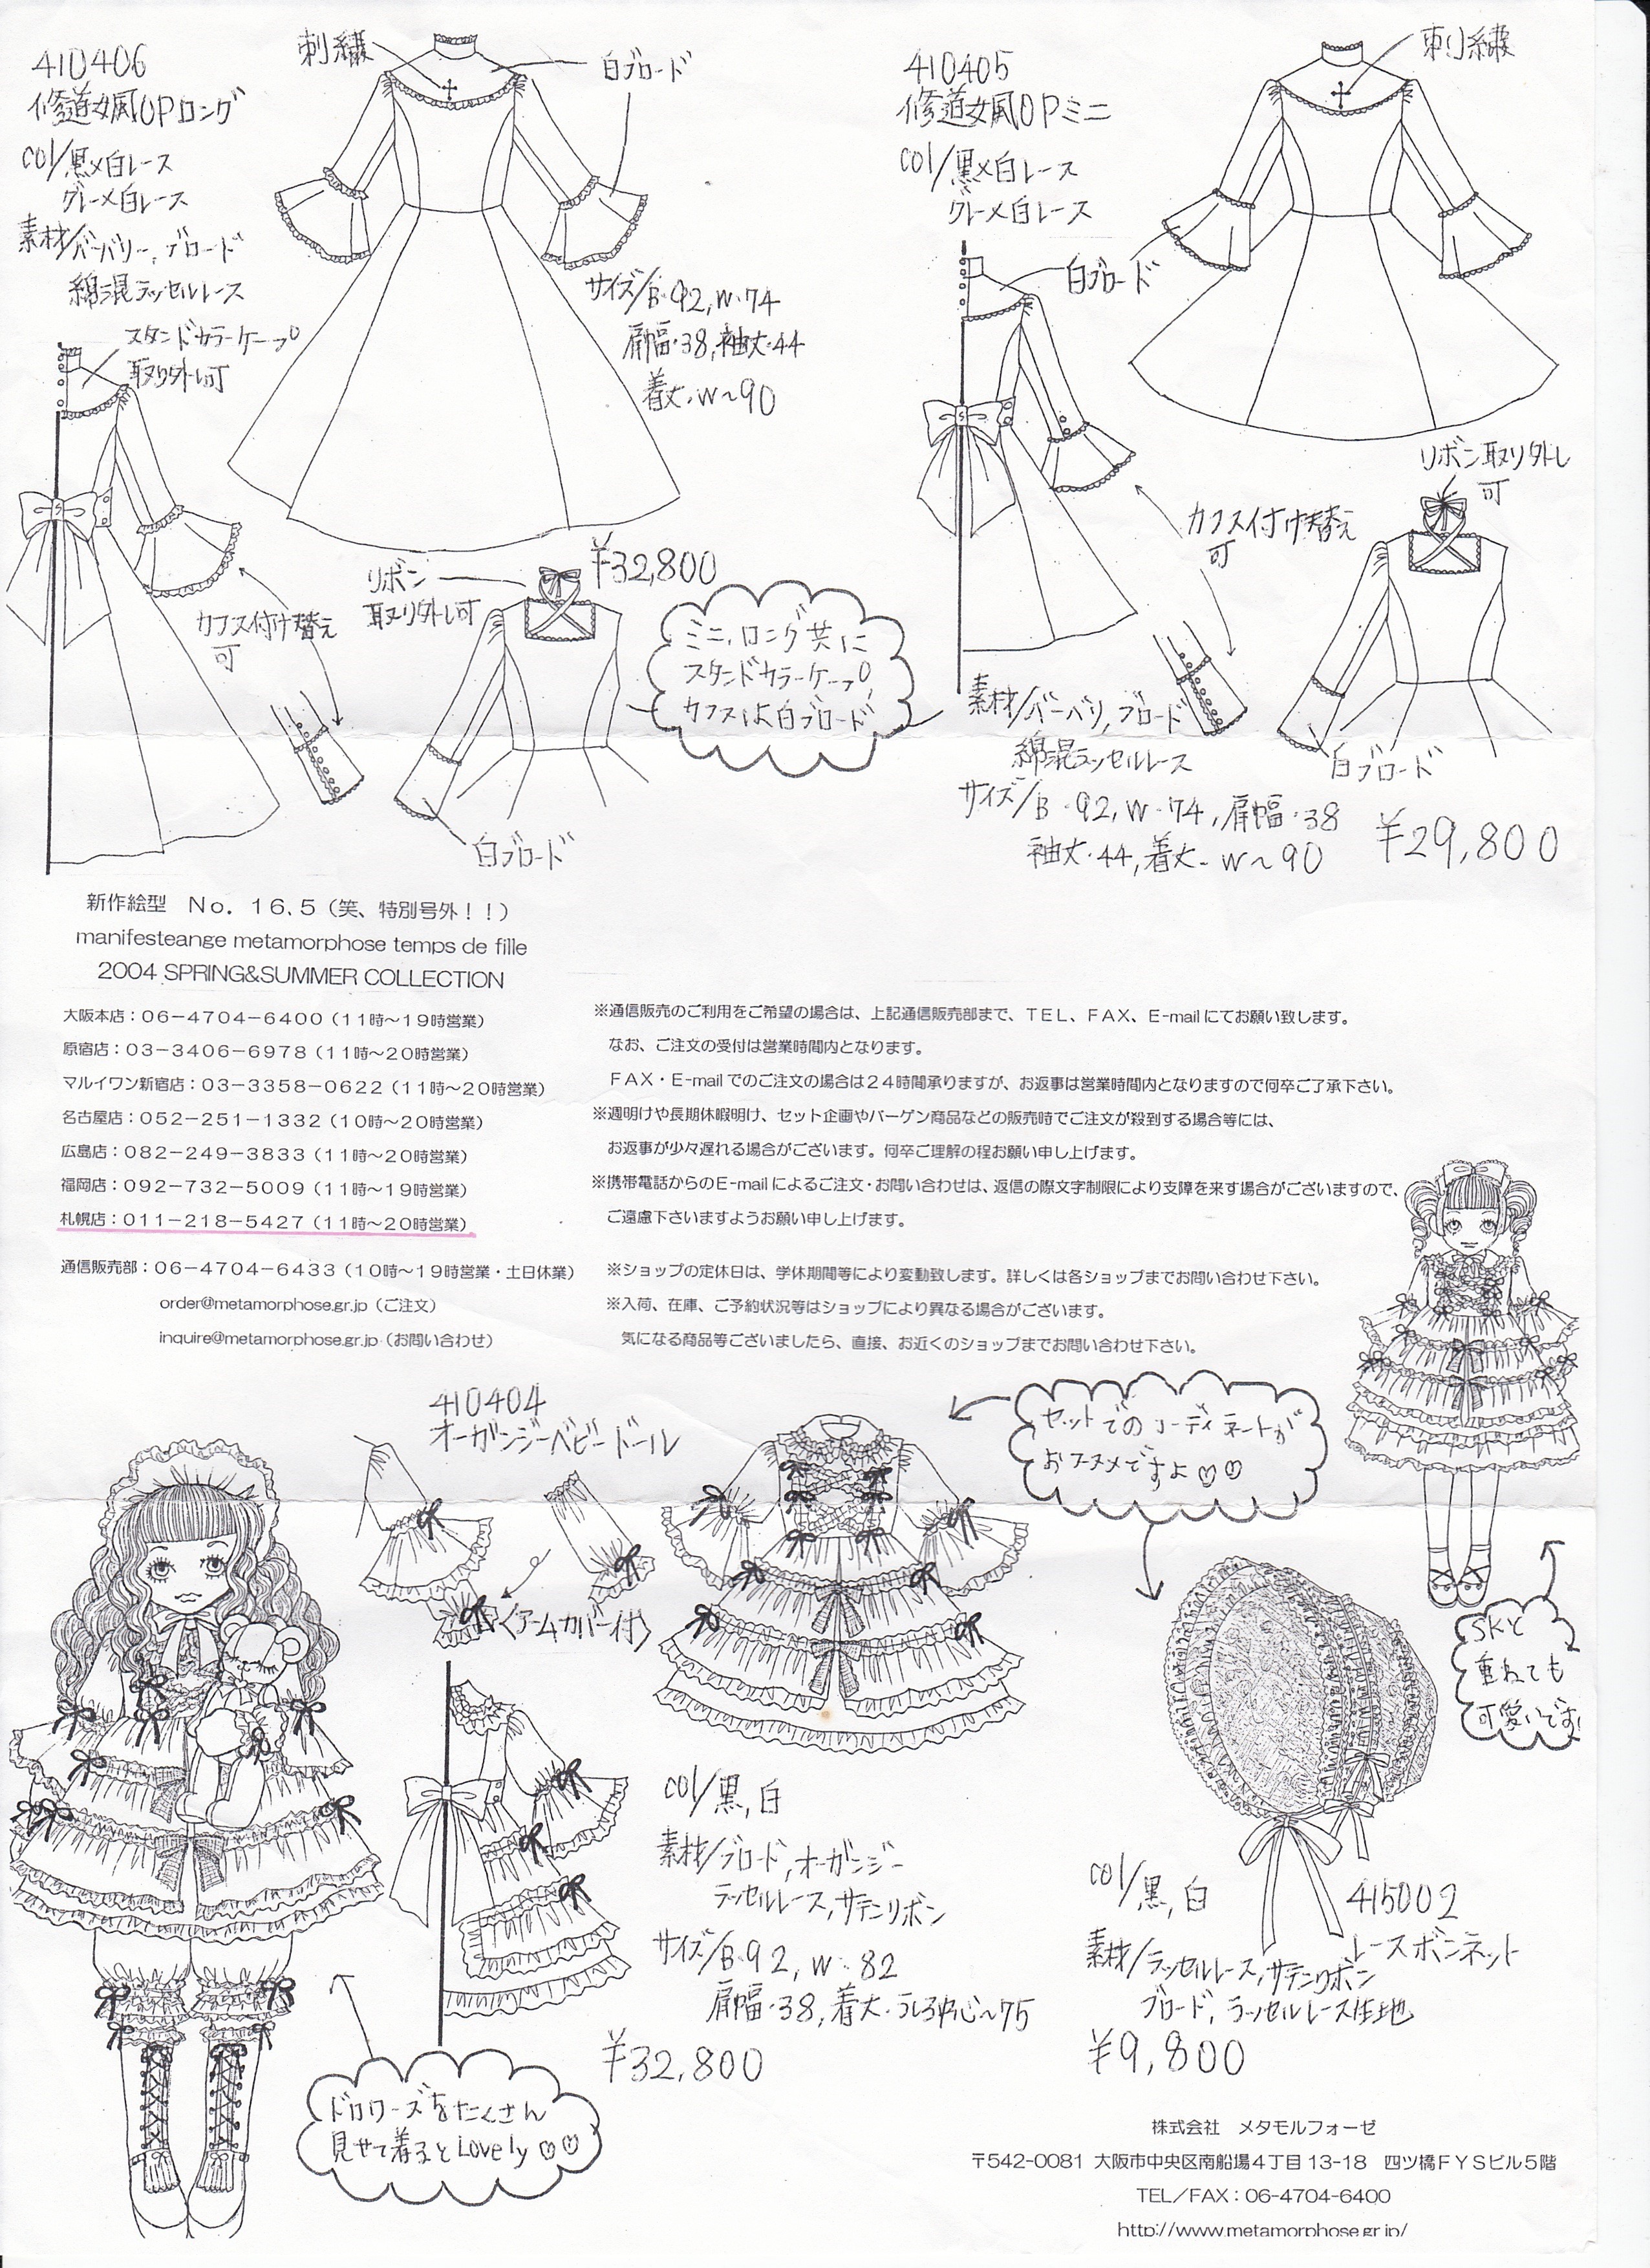 410406
修道女風OPロング
col/黒×白レース
グレー×白レース
素材/バーバリー、ブロード
綿混ラッセルレース
スタンドカラーケープ
取り外し可
刺繍
白ブロード
サイズ/B・92, W・74
肩幅・38, 袖丈・44
着丈・W~90
¥32,800
カフス付け替え
可
リボン
取り外し可
白ブロード
ミニ、ロング共に
スタンドカラーケープ、
カフスは白ブロード
410405
修道女風OPミニ
col/黒×白レース
グレー×白レース
刺繍
白ブロード
リボン取り外し
可
カフス付け替え
可
白ブロード
素材/バーバリ, ブロード
綿混ラッセルレース
サイズ/B・92, W・74, 肩幅・38
袖丈・44, 着丈- W~90
¥29,800
新作絵型 No. 16.5(笑、特別号外!!)
manifesteange metamorphose temps de fille
2004 SPRING&SUMMER COLLECTION
大阪本店:06-4704-6400(11時~19時営業)
原宿店:03-3406-6978(11時~20時営業)
マルイワン新宿店:03-3358-0622(11時~20時営業)
名古屋店:052-251-1332(10時~20時営業)
広島店:082-249-3833(11時~20時営業)
福岡店:092-732-5009(11時~19時営業)
札幌店:011-218-5427(11時~20時営業)
通信販売部:06-4704-6433(10時~19時営業・土日休業)
order@metamorphose.gr.jp(ご注文)
inquire@metamorphose.gr.jp(お問い合わせ)
※通信販売のご利用をご希望の場合は、上記通信販売部まで、TEL、FAX、E-mailにてお願い致します。
なお、ご注文の受付は営業時間内となります。
FAX・E-mailでのご注文の場合は24時間承りますが、お返事は営業時間内となりますので何卒ご了承下さい。
※週明けや長期休暇明け、セット企画やバーゲン商品などの販売時でご注文が殺到する場合等には、
お返事が少々遅れる場合がございます。何卒ご理解の程お願い申し上げます。
※携帯電話からのE-mailによるご注文・お問い合わせは、返信の際文字制限により支障を来す場合がございますので、
ご遠慮下さいますようお願い申し上げます。
※ショップの定休日は、学休期間等により変動致します。詳しくは各ショップまでお問い合わせ下さい。
※入荷、在庫、ご予約状況等はショップにより異なる場合がございます。
気になる商品等ございましたら、直接、お近くのショップまでお問い合わせ下さい。
410404
オーガンジーベビードール
〈アームカバー付〉
セットでのコーディネートが
おススメですよ♡♡
SKと
重ねても
可愛いです!
col/黒, 白
素材/ブロード, オーガンジー
ラッセルレース, サテンリボン
サイズ/B・92, W・82
肩幅・38, 着丈・うしろ中心~75
¥32,800
ドロワーズをたくさん
見せて着るとLovely♡♡
col/黒, 白
415002
レースボンネット
素材/ラッセルレース, サテンリボン
ブロード, ラッセルレース生地
¥9,800
株式会社 メタモルフォーゼ
〒542-0081 大阪市中央区南船場4丁目13-18 四ツ橋FYSビル5階
TEL/FAX:06-4704-6400
http://www.metamorphose.gr.jp/